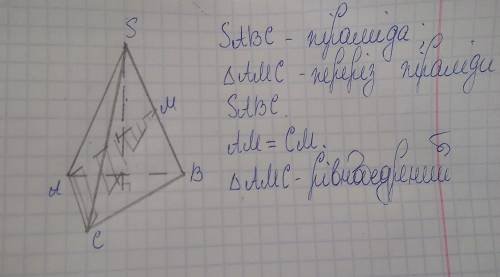 S
M
A
B
C
SABC - піраміда
△AMC - переріз піраміди
SABC.
AM = CM.
△AMC - рівнобедрений